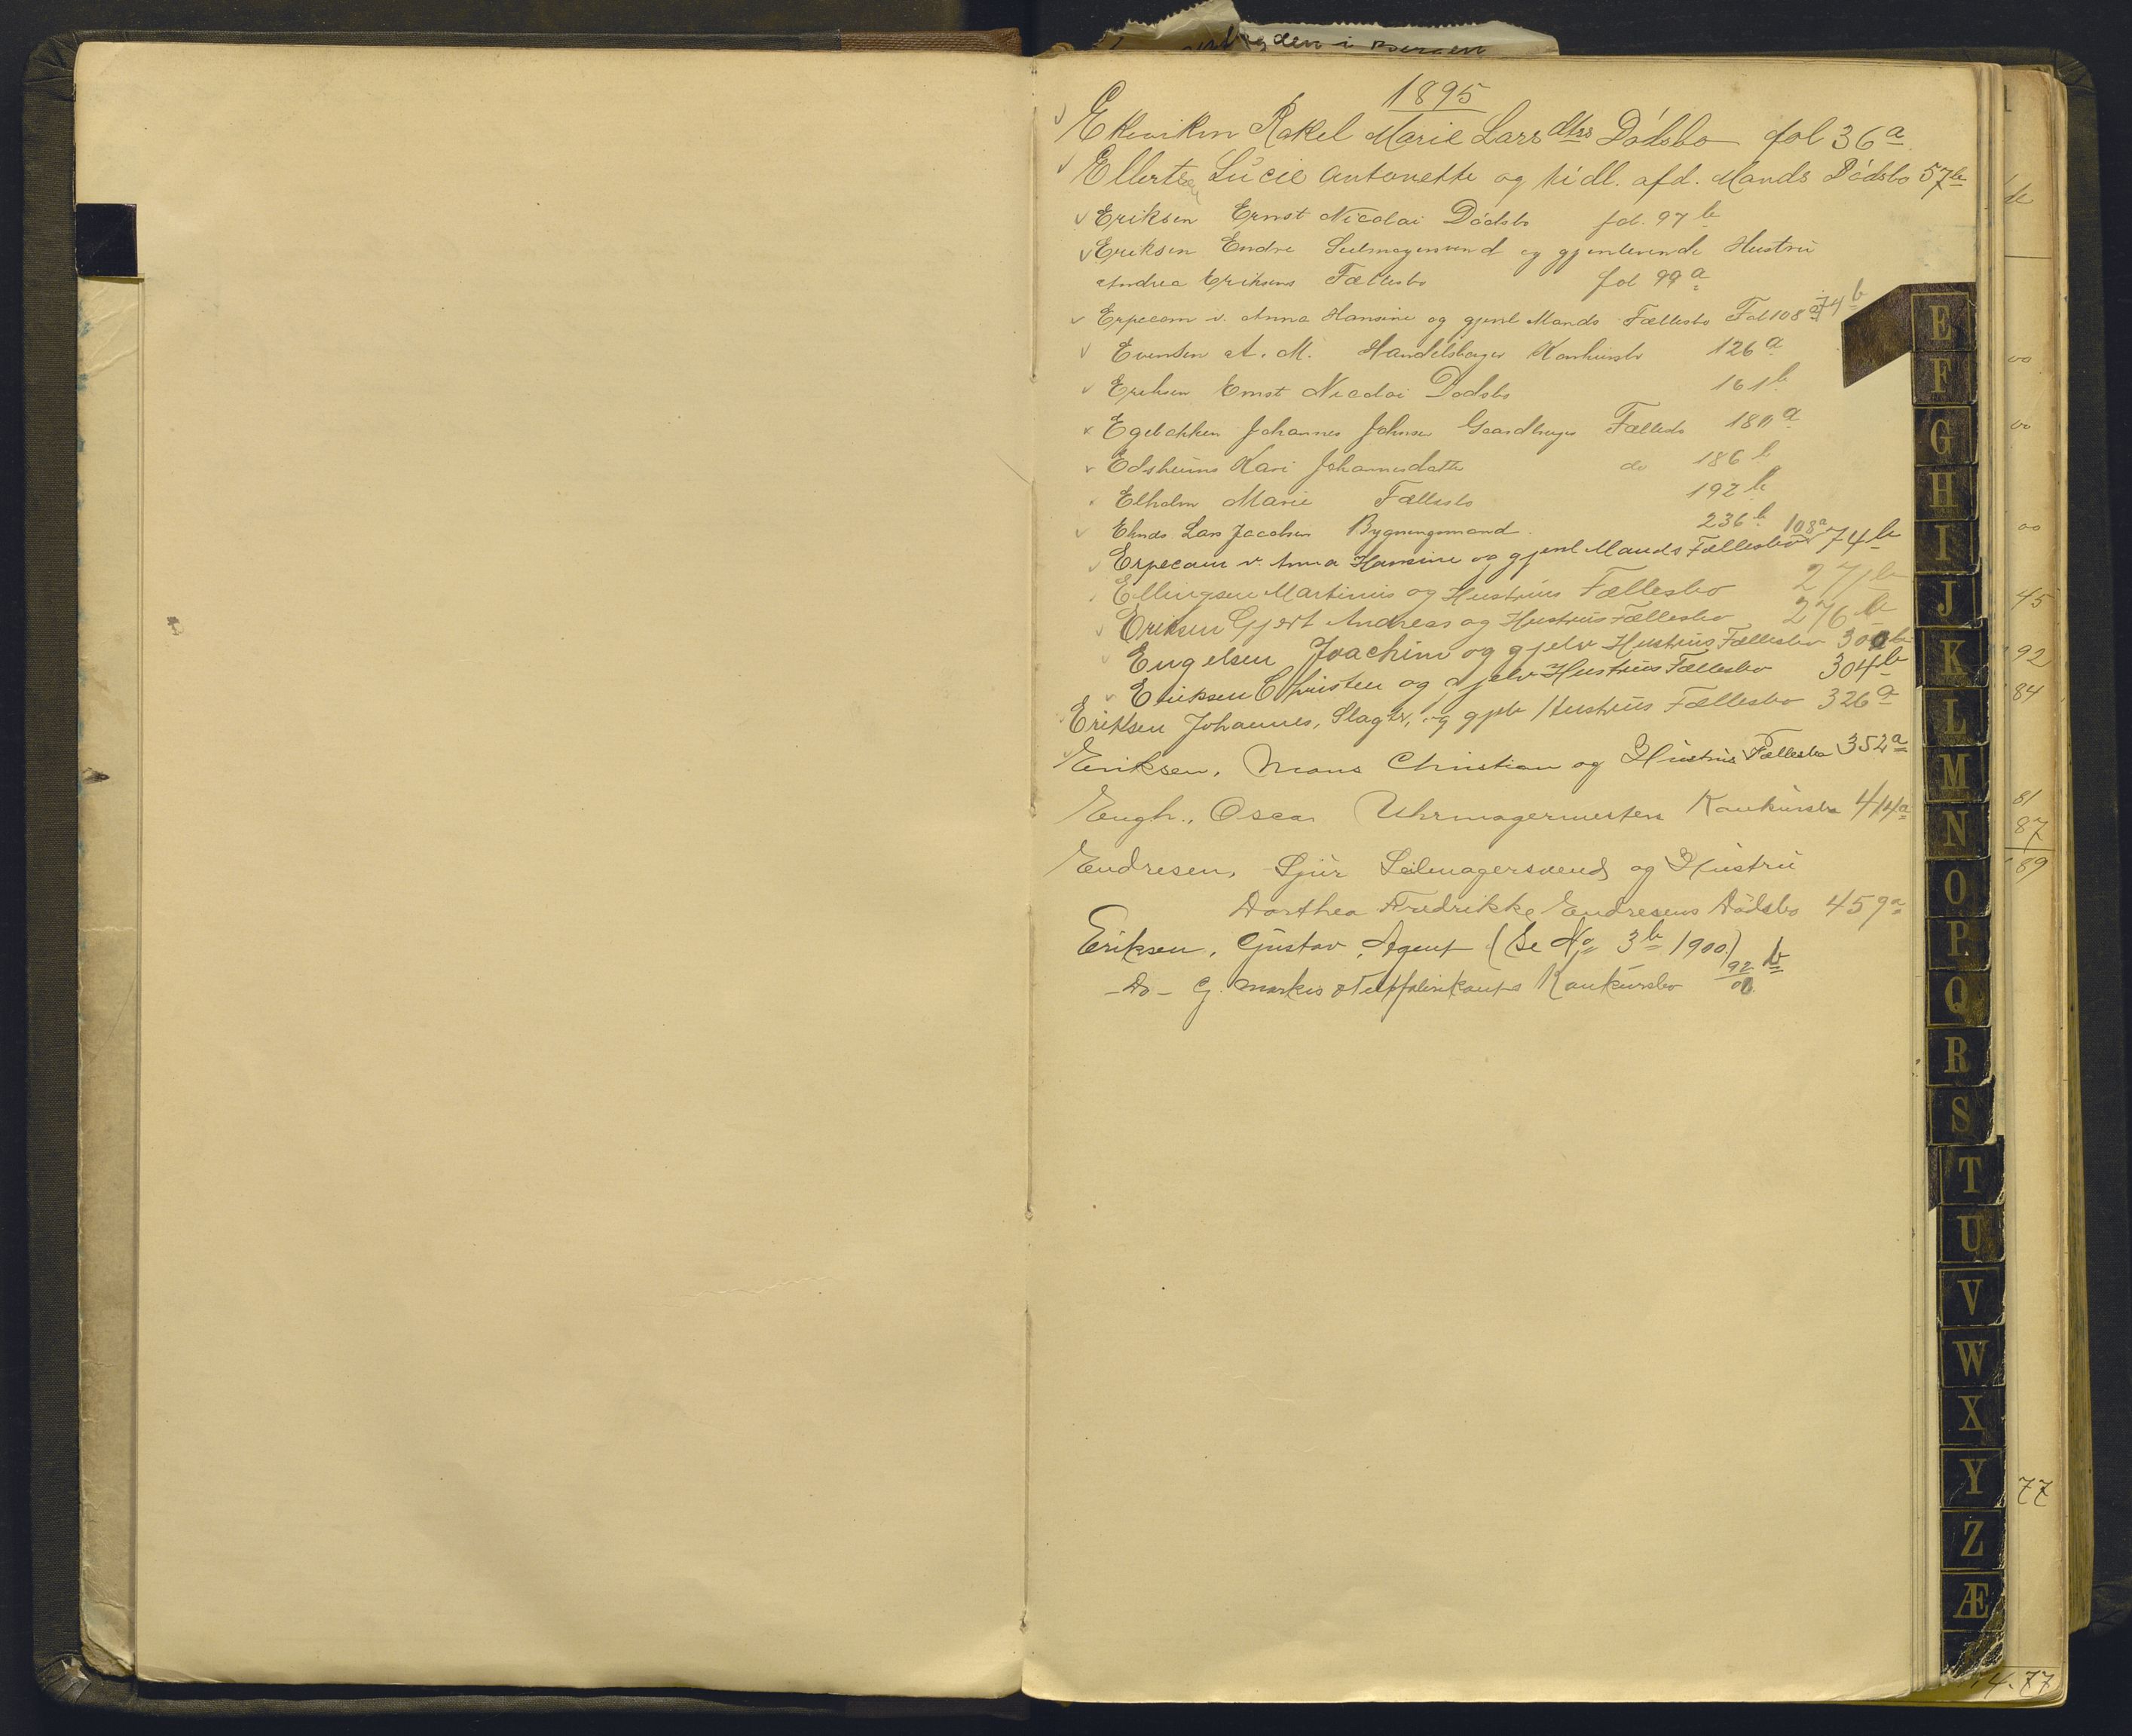 den i Bergen
1895
Ekeviken Rakel Marie Larsdtrs Dödsbo fol 36a
Ellertsen Lucie Antonette og tidl. afd. Mands Dödsbo 57b
Eriksen Ernst Nicolai Dödsbo fol. 97b
Eriksen Endre Seilmagersvend og gjenlevende Hustru
Andrea Eriksens Fællesbo fol 99a
Erpecom v. Anna Hansine og gjenl Mands Fællesbo Fol 108a 74b
Evensen A. M. Handelsborger Konkursbo 126a
Eriksen Ernst Nicolai Dödsbo 161b
Egebakken Johannes Johnsen Gaardbruger Fællesbo 180a
Edsheims Kari Johannesdatter do 186b
Elholm Marie Fællesbo 192b
Lars Jacobsen Bygningsmand 236b
Erpecom v. Anna Hansine og gjenl Mands Fællesbo 108a 74b
Ellingsen Martinus og Hustrus Fællesbo 271b
Eriksen Gjert Andreas og Hustrus Fællesbo 276b
Engelsen Joachim og gjelv Hustrus Fællesbo 300b
Eriksen Christen og gjelv Hustrus Fællesbo 304b
Eriksen Johannes, Slagter, og gjelv Hustrus Fællesbo 326a
Eriksen, Mons Christian og Hustrus Fællesbo 352a
Engh., Oscar Uhrmagermesters Konkursbo 414a
Endresen, Sjur Seilmagersvend og Hustru
Dorthea Fredrikke Endresens Dödsbo 459a
Eriksen, Gustav, Agent (Se No 3b 1900)
- Do - G. Markis & Teltfabrikants Konkursbo 92/00 b
E
F
G
H
I
J
K
L
M
N
O
P
Q
R
S
T
U
V
W
X
Y
Z
Æ
00
00
00
45
92
84
81
87
89
77
4.77